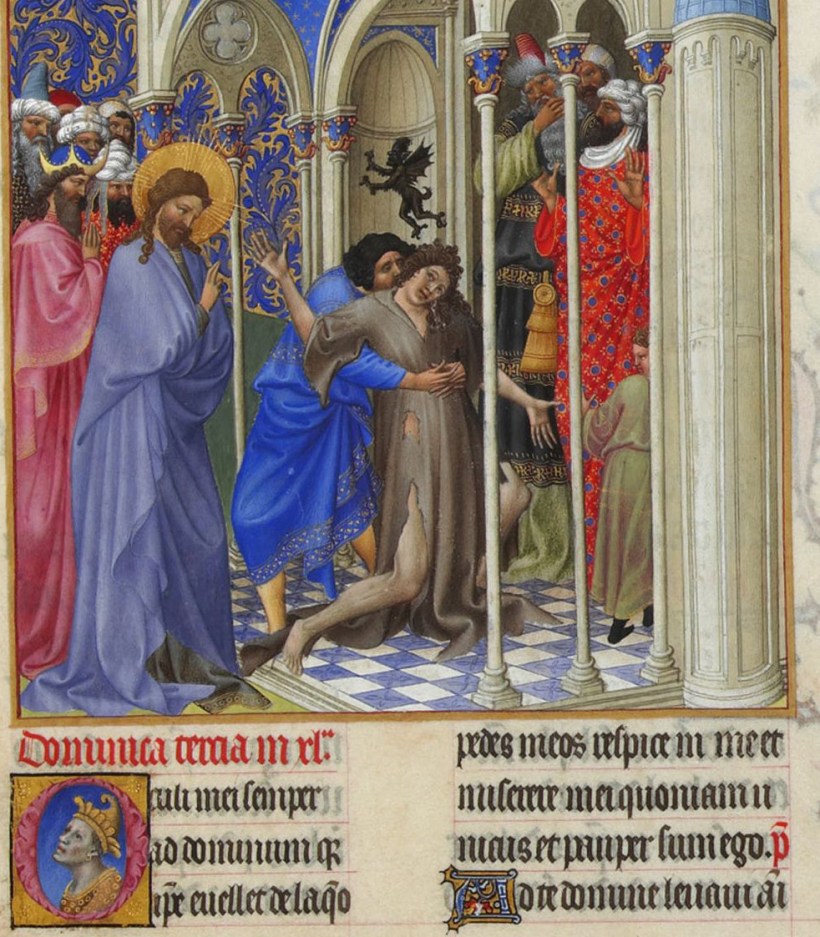 Dominica tercia in xl.
Oculi mei semper
ad dominum q̄
ip̄e euellet de laq̄o
pedes meos respice in me et
miserere mei quoniam u
nicus et pauper sum ego. p̄
Ad te domine leuaui āi